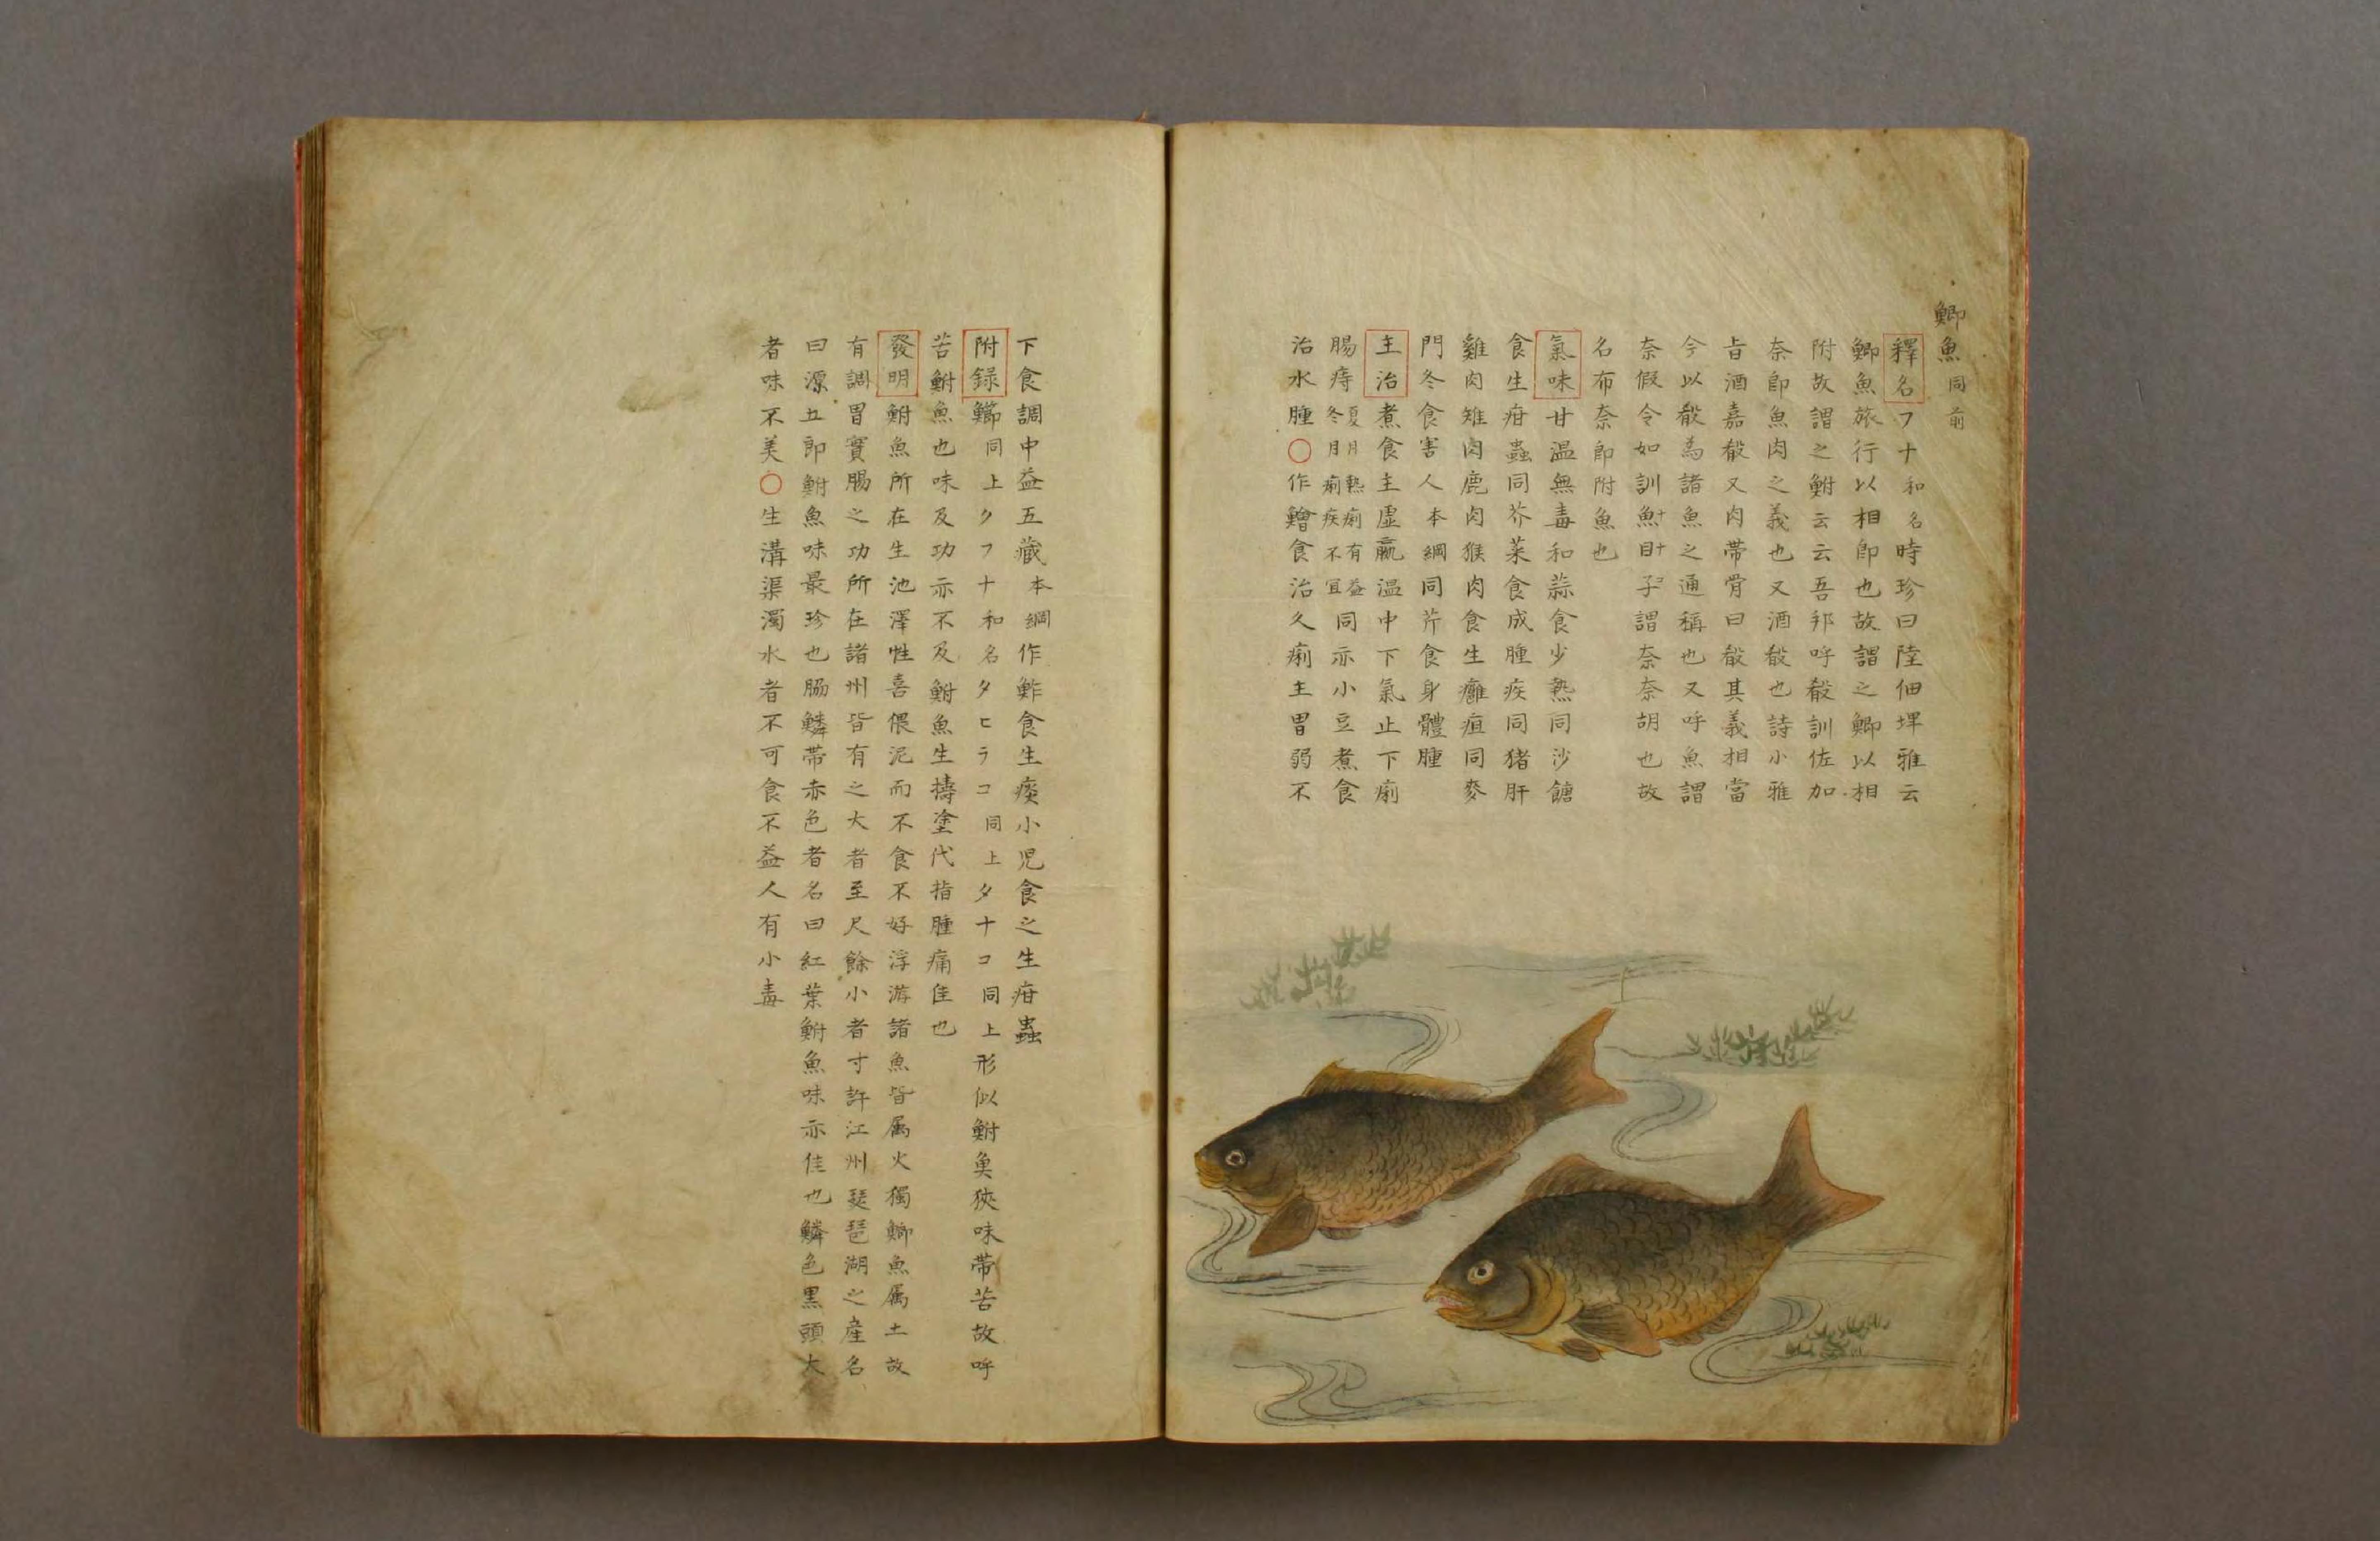 鯽魚同前
釋名フナ和名時珍曰陸佃埤雅云
鯽魚旅行以相即也故謂之鯽以相
附故謂之鮒云云吾邦呼殽訓佐加
奈即魚肉之義也又酒殽也詩小雅
旨酒嘉殽又肉帯骨曰殽其義相當
今以殽為諸魚之通稱也又呼魚謂
奈假令如訓魚ナ目ナ子コ謂奈奈胡也故
名布奈即附魚也
氣味甘温無毒和蒜食少熱同沙餹
食生疳蟲同芥菜食成腫疾同猪肝
雞肉雉肉鹿肉猴肉食生癰疽同麥
門冬食害人本綱同芹食身體腫
主治煮食主虚羸温中下氣止下痢
腸痔夏月熱痢有益冬月痢疾不宜同赤小豆煮食
治水腫○作鱠食治久痢主胃弱不
下食調中益五藏本綱作鮓食生痰小児食之生疳蟲
附録鯽同上クフナ和名タヒラコ同上タナコ同上形似鮒魚狹味帯苦故呼
苦鮒魚也味及功亦不及鮒魚生擣塗代指腫痛佳也
發明鮒魚所在生池澤性喜偎泥而不食不好浮游諸魚皆属火獨鯽魚属土故
有調胃實腸之功所在諸州皆有之大者至尺餘小者寸許江州琵琶湖之産名
曰源五郎鮒魚味最珍也腸鱗帯赤色者名曰紅葉鮒魚味亦佳也鱗色黒頭大
者味不美○生溝渠濁水者不可食不益人有小毒